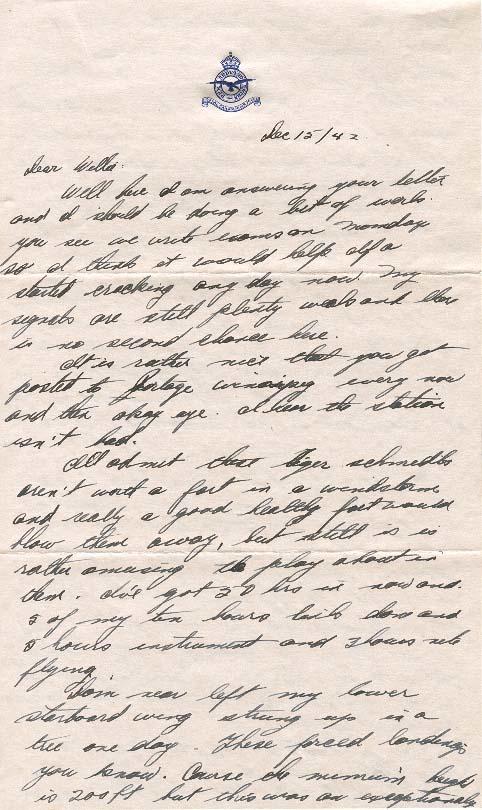 Dec 15/42
Dear Willa:
Well here I am answering your letter
and I should be doing a bit of work.
you see we write exams on monday
so I think it would help if I
started cracking any day now. My
signals are still plenty weak and there
is no second chance here.
It is rather nice that you got
posted to Portage winnipeg every now
and then okay eye. I hear the station
isn't bad.
I'll admit that tiger schmidts
aren't worth a fart in a windstorm
and really a good healthy fart would
blow them away, but still is is
rather amusing to play about in
them. I've got 30 hrs in now and
5 of my ten hours link done and
5 hours instrument and 3 hours solo
flying
Doin near left my lower
starboard wing strung up in a
tree one day. These forced landings
you know. Course the minimum
is 200 ft but this was an exceptionally